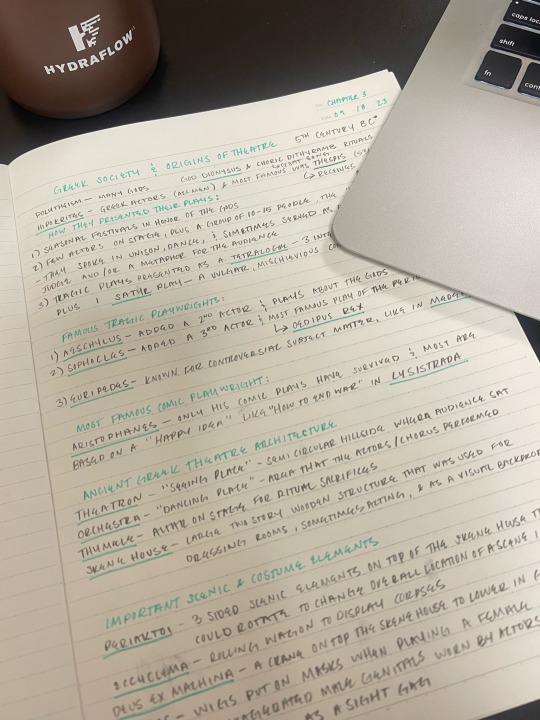 HYDRAFLOW
caps loc
shift
fn
CHAPTER 3
09 18 23
GREEK SOCIETY & ORIGINS OF THEATRE 5TH CENTURY BC
POLYTHEISM - MANY GODS GOD DIONYSUS & CHORIC DITHYRAMB RITUALS
HIPOKRITES - GREEK ACTORS (ALL MEN) & MOST FAMOUS WAS THESPIS
HOW THEY PRESENTED THEIR PLAYS:
1) SEASONAL FESTIVALS IN HONOR OF THE GODS
2) FEW ACTORS ON STAGE, PLUS A GROUP OF 10-15 PEOPLE, THE
- THEY SPOKE IN UNISON, DANCE, & SIMETIMES SERVED AS
JUDGE AND/OR A METAPHOR FOR THE AUDIENCE
3) TRAGIC PLAYS PRESENTED AS A TETRALOGUE - 3
PLUS 1 SATYR PLAY - A VULGAR, MISCHIEVIOUS
FAMOUS TRAGIC PLAYWRIGHTS:
1) AESCHYLUS - ADDED A 2ND ACTOR & PLAYS ABOUT THE GODS
2) SOPHOCLES - ADDED A 3RD ACTOR & MOST FAMOUS PLAY OF THE
OEDIPUS REX
3) EURIPEDES - KNOWN FOR CONTROVERSIAL SUBJECT MATTER, LIKE IN
MOST FAMOUS COMIC PLAYWRIGHT:
ARISTOPHANES - ONLY HIS COMIC PLAYS HAVE SURVIVED & MOST ARE
BASED ON A "HAPPY IDEA" LIKE "HOW TO END WAR" IN LYSISTRADA
ANCIENT GREEK THEATRE ARCHITECTURE
THEATRON - "SEEING PLACE" - SEMI CIRCULAR HILLSIDE WHERE AUDIENCE SAT
ORCHESTRA - "DANCING PLACE" - AREA THAT THE ACTORS/CHORUS PERFORMED
THUMELE - ALTAR ON STAGE FOR RITUAL SACRIFICES
SKENE HOUSE - LARGE TWO STORY WOODEN STRUCTURE THAT WAS USED FOR
DRESSING ROOMS, SOMETIMES ACTING, & AS A VISUAL BACKDROP
IMPORTANT SCENIC & COSTUME ELEMENTS
PERIAKTOI - 3 SIDED SCENIC ELEMENTS ON TOP OF THE SKENE HOUSE
COULD ROTATE TO CHANGE OVERALL LOCATION OF A SCENE
ECCYCLEMA - ROLLING WAGON TO DISPLAY CORPSES
DEUS EX MACHINA - A CRANE ON TOP THE SKENE HOUSE TO LOWER IN
- WIGS PUT ON MASKS WHEN PLAYING A FEMALE
EXAGGERATED MALE GENITALS WORN BY ACTORS
AS A SIGHT GAG